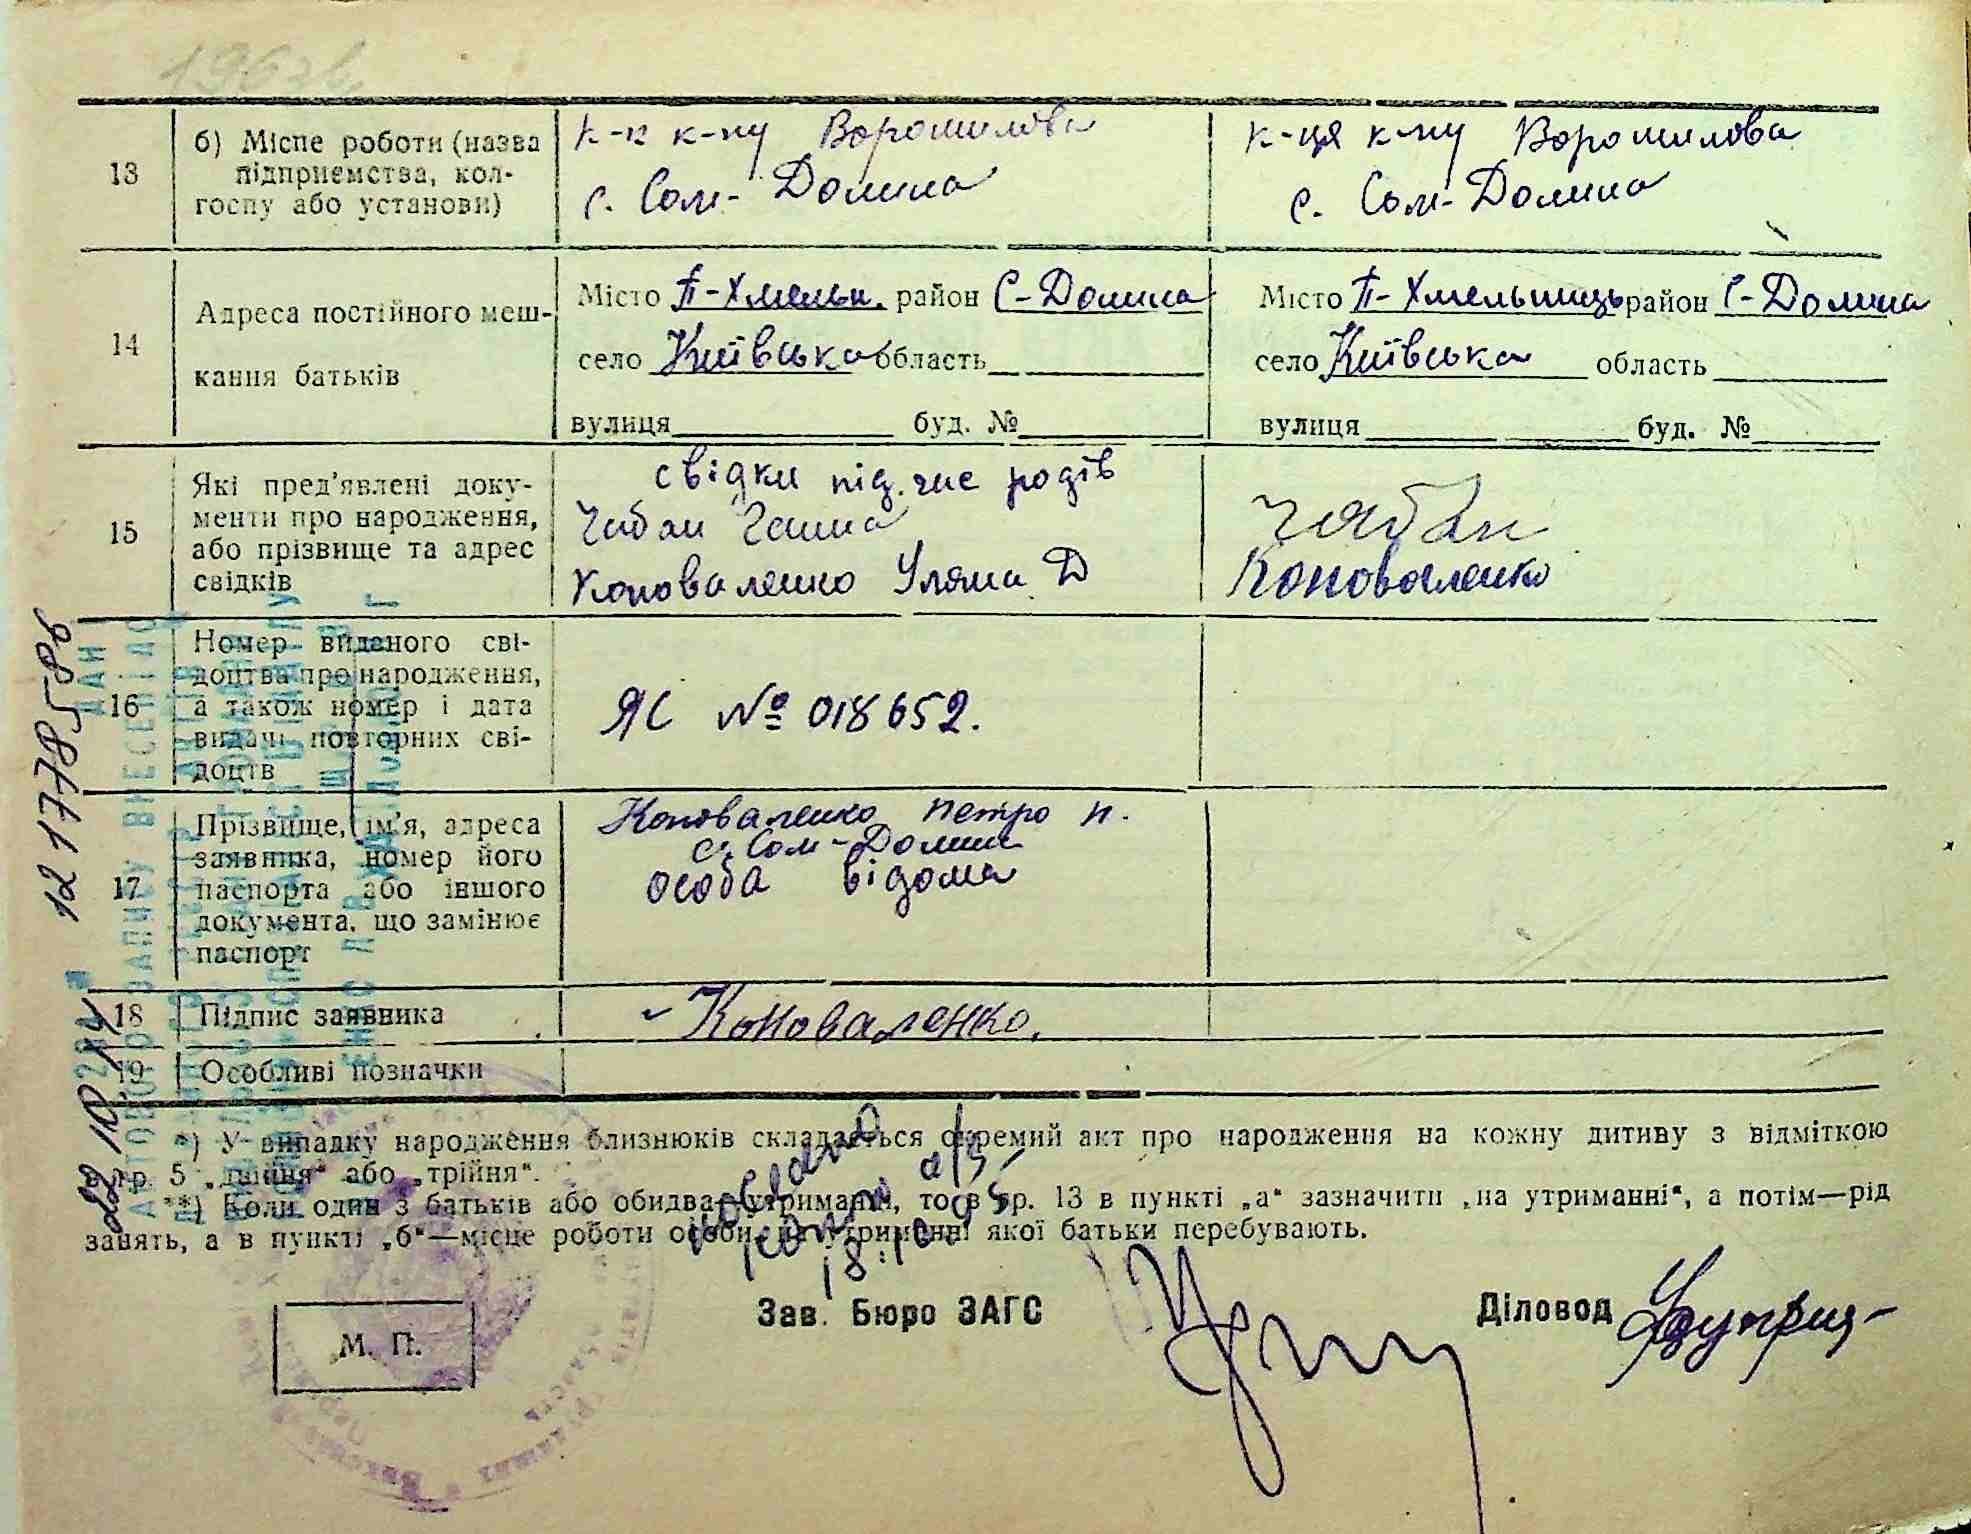 13
б) Місце роботи (назва
підприємства, кол-
госпу або установи)
к-к к-пу Ворошилова
с. Сом-Долина
к-ця к-пу Ворошилова
с. Сом-Долина
14
Адреса постійного меш-
кання батьків
Місто П-Хмельн. район С-Долина
село Київська область
вулиця буд. №
Місто П-Хмельниць район С-Долина
село Київська область
вулиця буд. №
15
Які пред'явлені доку-
менти про народження,
або прізвище та адрес
свідків
свідки під час родів
Чабан Ганна
Коноваленко Уляна Д
Чабан
Коноваленко
16
Номер виданого сві-
доцтва про народження,
а також номер і дата
видачі повторних сві-
доцтв
ЯС № 018652.
17
Прізвище, ім'я, адреса
заявника, номер його
паспорта або іншого
документа, що замінює
паспорт
Коноваленко Петро П.
с. Сом-Долина
особа відома
18
Підпис заявника
Коноваленко.
19
Особливі позначки
*) У випадку народження близнюків складається окремий акт про народження на кожну дитину з відміткою
в гр. 5 „двійня" або „трійня".
**) Коли один з батьків або обидва—утриманці, то в гр. 13 в пункті „а" зазначити „на утриманні", а потім—рід
занять, а в пункті „б"—місце роботи особи, на утриманні якої батьки перебувають.
М. П.
Зав. Бюро ЗАГС
Діловод
12177785586